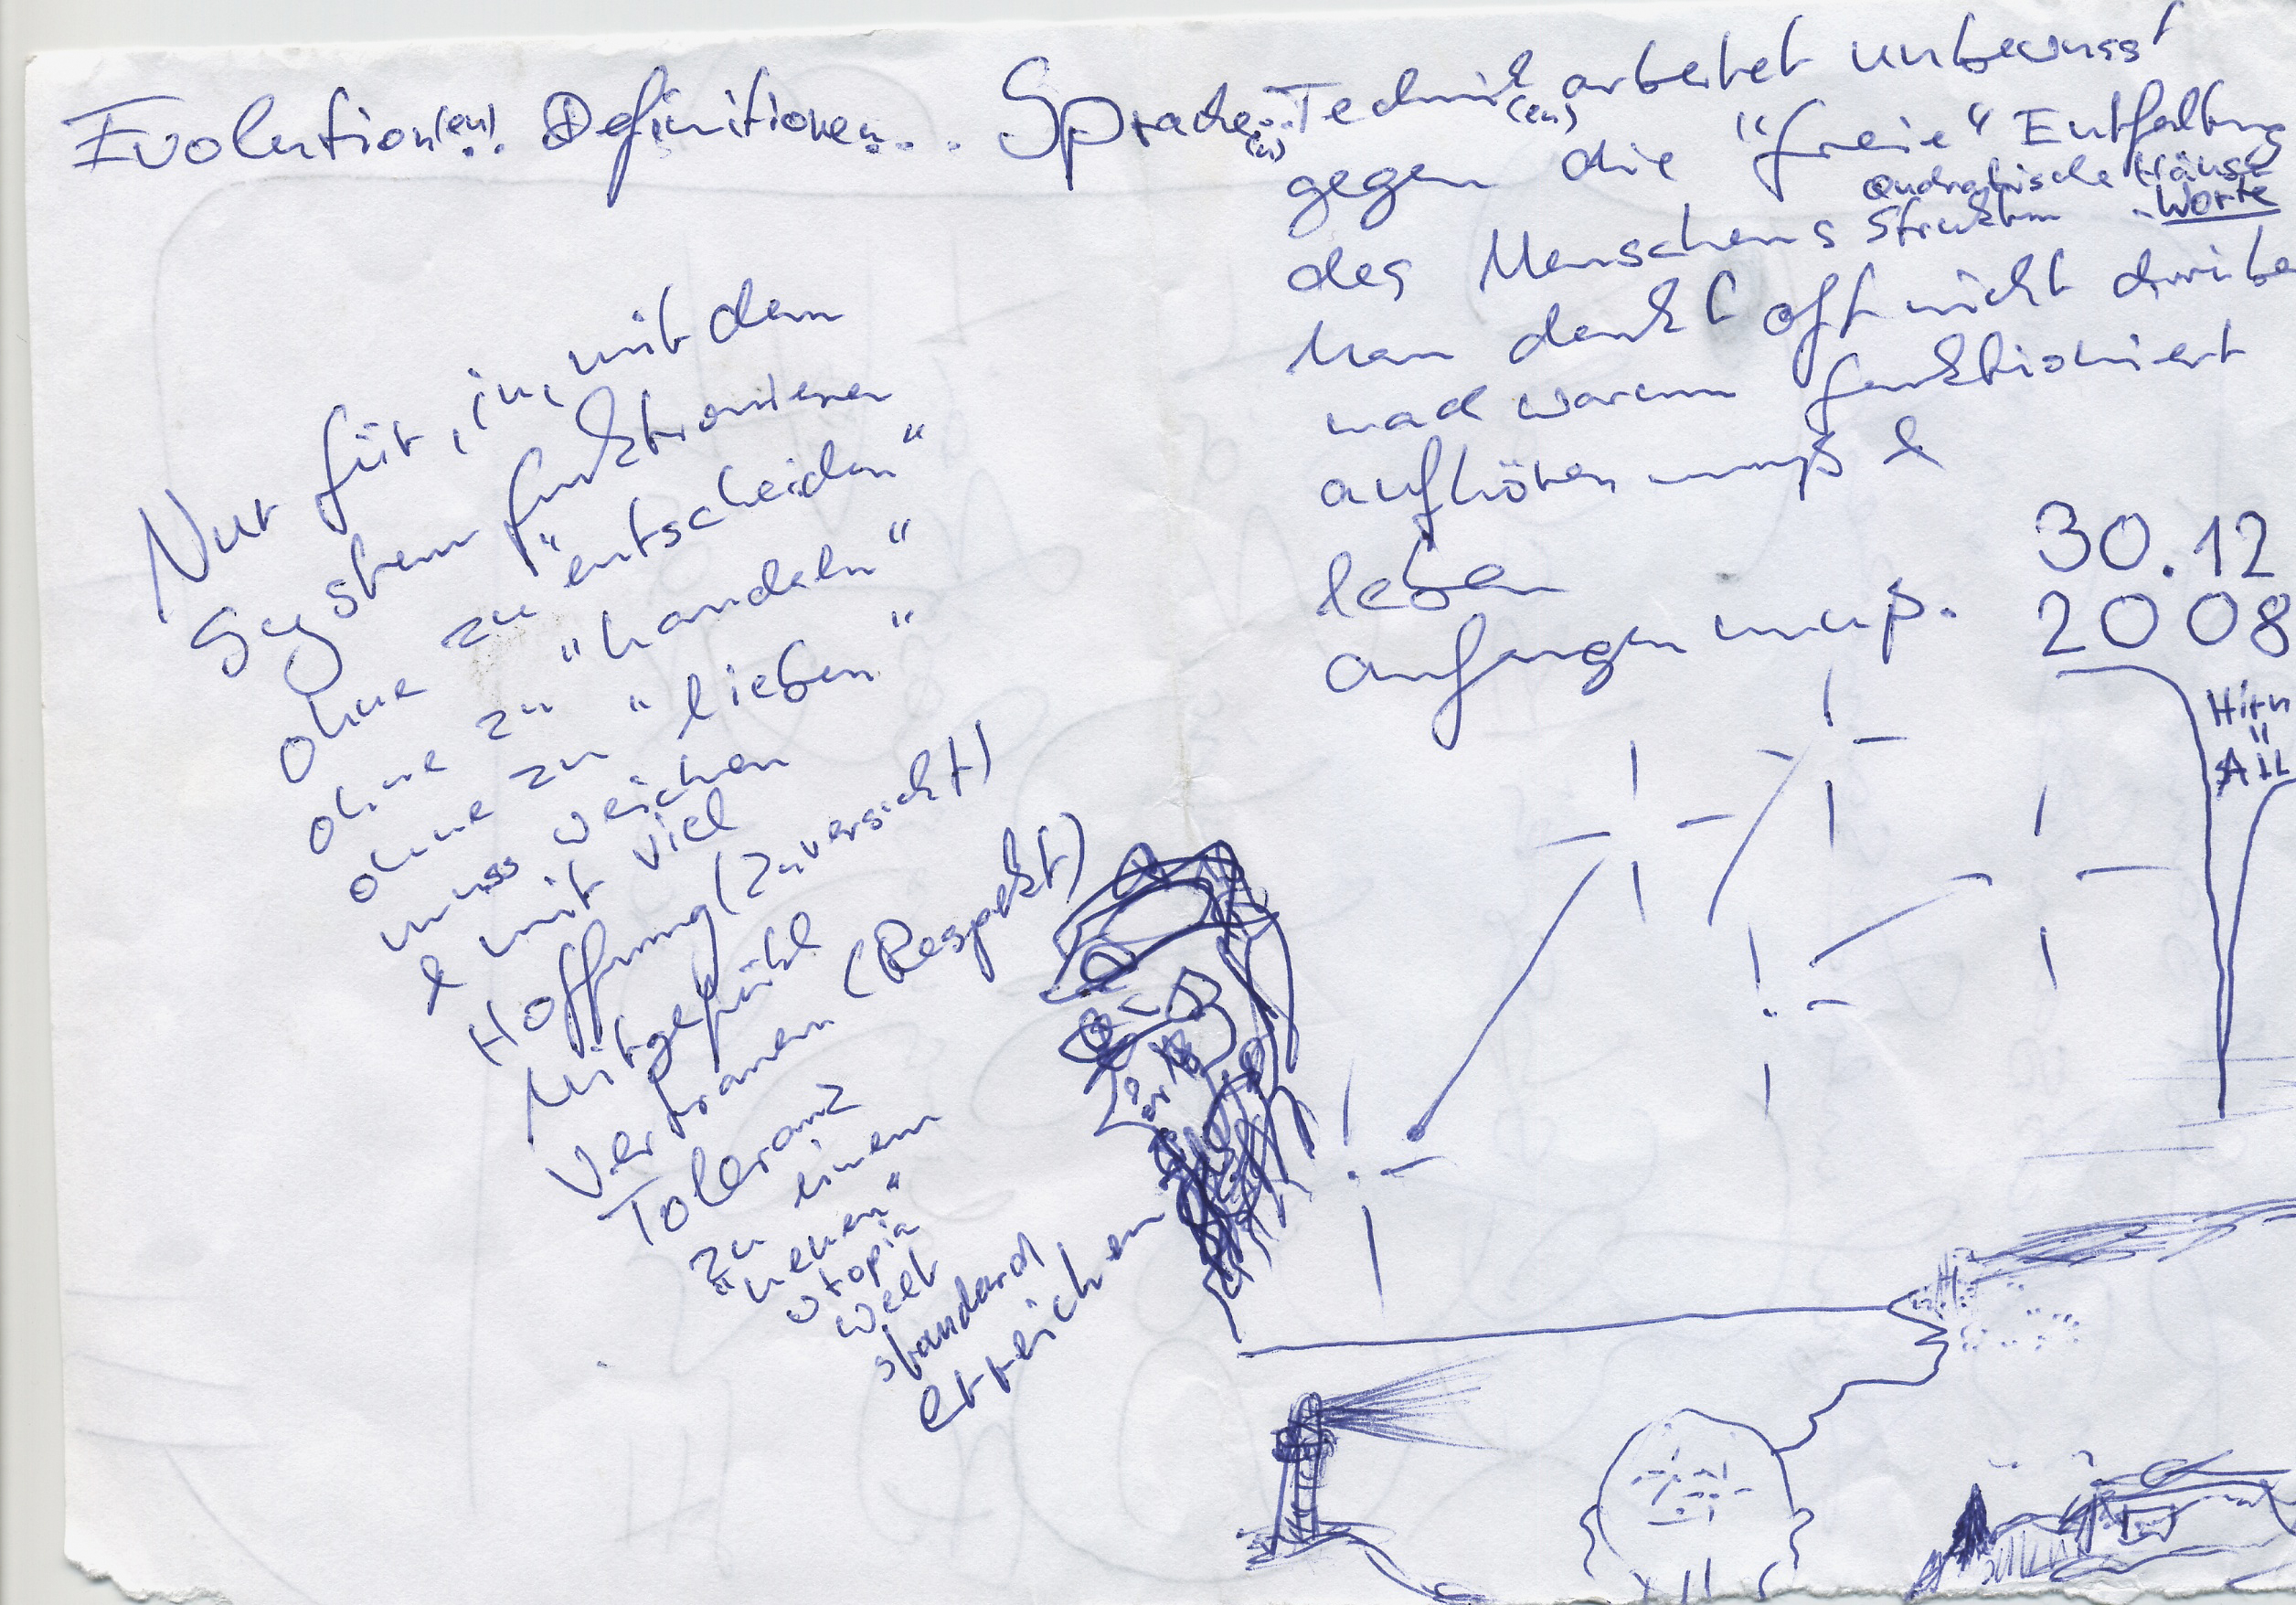 Evolution(en)... Definitionen... Sprache(n)...
Technik(en) arbeitet unbewusst
gegen die "freie" Entfaltung
des Menschens
Quadratische Häuse
Struktur - Worte
Man denkt oft nicht drübe
nad warum funktioniert
aufhören muß &
leben
anfangen muß.
30.12
2008
Hirn
All
Nur für, in, mit dem
System funktionieren
ohne zu "entscheiden"
ohne zu "handeln"
ohne zu "lieben"
muss weichen
& mit viel
Hoffnung (Zuversicht)
Mitgefühl
Vertrauen (Respekt)
Toleranz
zu einem
"neuen"
utopia
welt
standard
erreichen